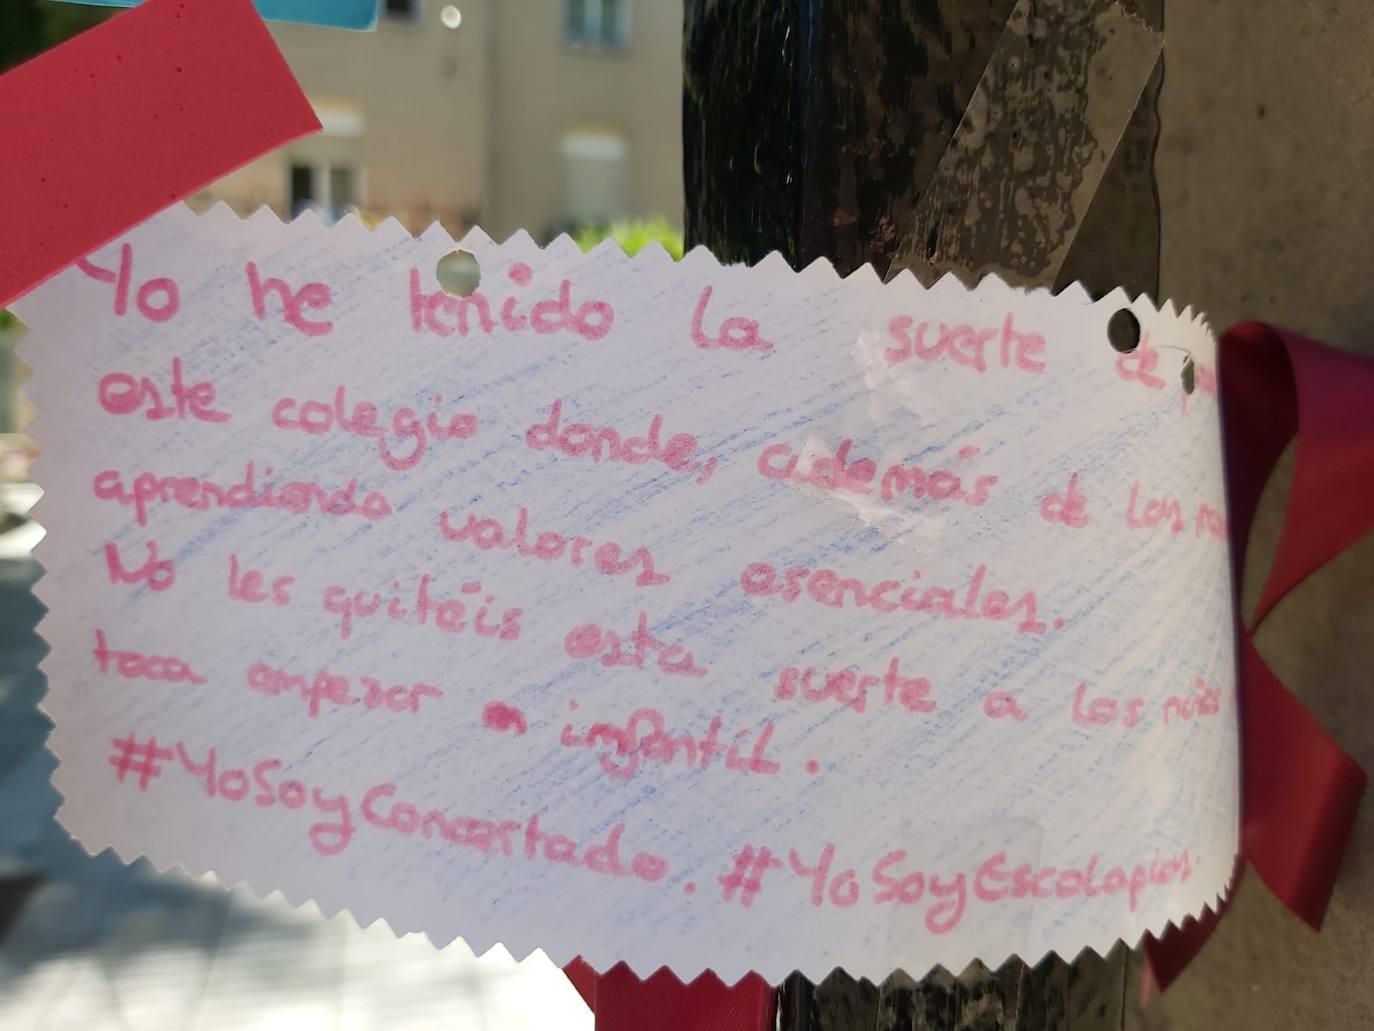 Yo he tenido la suerte de
este colegio donde, además de los
aprendiendo valores esenciales.
No les quitéis esta suerte a los niños
toca empezar en infantil.
#YoSoyConcertado. #YoSoyEscolapios.